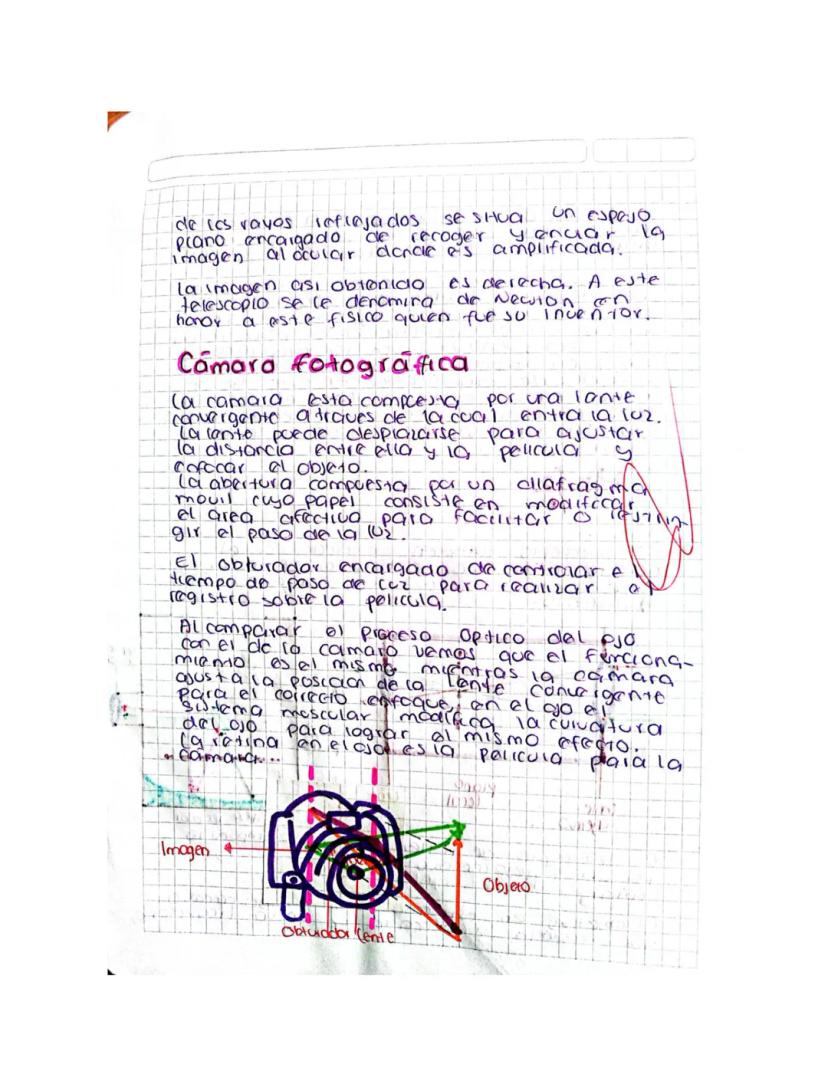 de los rayos reflejados se situa un espejo
plano encargado de recoger y enviar la
imagen al ocular donde es amplificada.
la imagen asi obtenido es derecha. A este
telescopio se le denomina de Newton en
honor a este fisico quien fue su inventor.
Cámara fotográfica
La camara esta compuesta por una lente
convergente a traves de la cual entra la luz.
La lente puede desplazarse para ajustar
la distancia entre ella y la pelicula y
enfocar el objeto.
La abertura compuesta por un diafragma
movil cuyo papel consiste en modificar
el area efectiva para facilitar o restrin-
gir el paso de la luz.
El obturador encargado de controlar el
tiempo de paso de luz para realizar el
registro sobre la pelicula.
Al comparar el proceso optico del ojo
con el de la camara vemos que el funciona-
miento es el mismo mientras la cámara
ajusta la posicion de la lente convergente
para el correcto enfoque, en el ojo el
sistema muscular modifica la curvatura
del ojo para lograr el mismo efecto.
La retina en el ojo es la pelicula para la
camara...
Imagen
Objeto
Obturador lente